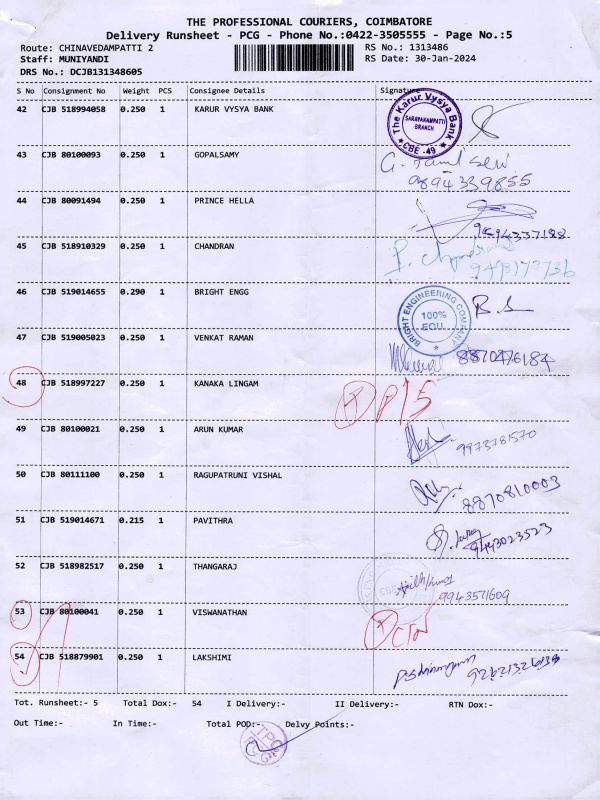 THE PROFESSIONAL COURIERS, COIMBATORE
Delivery Runsheet - PCG - Phone No.:0422-3505555 - Page No.:5
Route: CHINAVEDAMPATTI 2 RS No.: 1313486
Staff: MUNIYANDI RS Date: 30-Jan-2024
DRS No.: DCJB131348605
S No Consignment No Weight PCS Consignee Details Signature
42 CJB 518994058 0.250 1 KARUR VYSYA BANK
The Karur Vysya Bank
SARAVANAMPATTI
BRANCH
CBE - 49
43 CJB 80100093 0.250 1 GOPALSAMY
9894339855
44 CJB 80091494 0.250 1 PRINCE HELLA
45 CJB 518910329 0.250 1 CHANDRAN
P. Chandran
46 CJB 519014655 0.290 1 BRIGHT ENGG
BRIGHT ENGINEERING COMPANY
100%
EOU.
B.S
47 CJB 519005023 0.250 1 VENKAT RAMAN
8870476184
48 CJB 518997227 0.250 1 KANAKA LINGAM
49 CJB 80100021 0.250 1 ARUN KUMAR
50 CJB 80111100 0.250 1 RAGUPATRUNI VISHAL
8870810003
51 CJB 519014671 0.215 1 PAVITHRA
9443023523
52 CJB 518982517 0.250 1 THANGARAJ
9943571609
53 CJB 80100041 0.250 1 VISWANATHAN
54 CJB 518879901 0.250 1 LAKSHIMI
Tot. Runsheet:- 5 Total Dox:- 54 I Delivery:- II Delivery:- RTN Dox:-
Out Time:- In Time:- Total POD:- Delvy Points:-